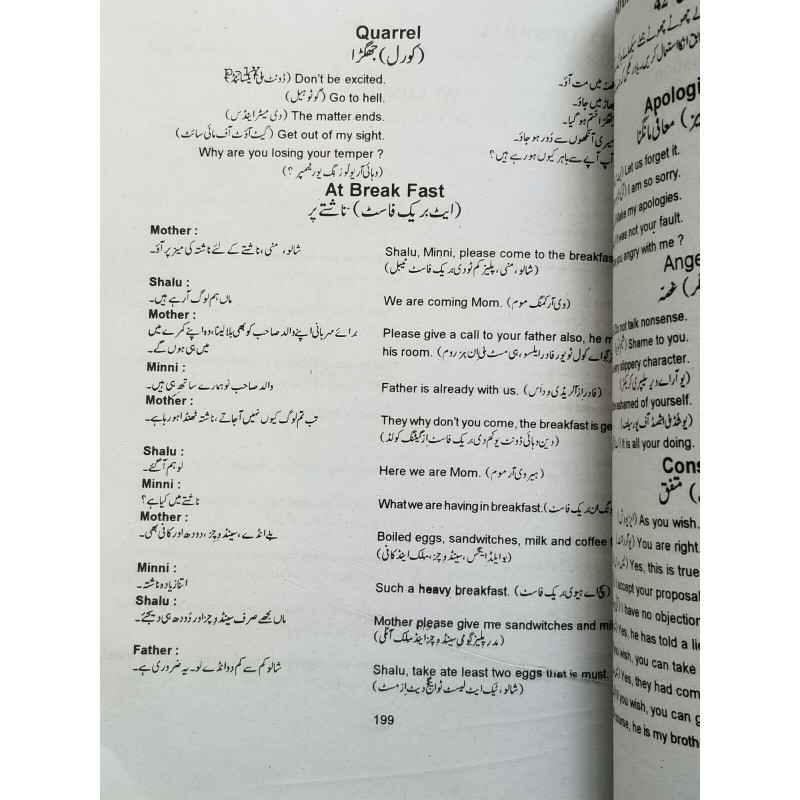 Quarrel
(کورل) جھگڑا
Don't be excited. غصہ میں مت آؤ۔
(گو ٹو ہیل) Go to hell. بھاڑ میں جاؤ۔
(دی میٹر اینڈس) The matter ends. جھگڑا ختم ہو گیا۔
(گیٹ آؤٹ آف مائی سائٹ) Get out of my sight. میری آنکھوں سے دُور ہو جاؤ۔
Why are you losing your temper ? آپ آپے سے باہر کیوں ہو رہے ہیں؟
(وہائی آر یو لوزنگ یور ٹیمپر؟)
At Break Fast
(ایٹ بریک فاسٹ) ناشتے پر
Mother :
شالو، منی، ناشتے کے لئے ناشتہ کی میز پر آؤ۔
Shalu, Minni, please come to the breakfas
(شالو، منی، پلیز کم ٹو دی بریک فاسٹ ٹیبل)
Shalu :
ماں ہم لوگ آ رہے ہیں۔
We are coming Mom. (وی آر کمنگ موم)
Mother :
برائے مہربانی اپنے والد صاحب کو بھی بلا لینا، وہ اپنے کمرے میں
میں ہی ہوں گے۔
Please give a call to your father also, he m
his room.
Minni :
والد صاحب تو ہمارے ساتھ ہی ہیں۔
Father is already with us. (فادر از آلریڈی وِد اَس)
Mother :
تب تم لوگ کیوں نہیں آ جاتے، ناشتہ ٹھنڈا ہو رہا ہے۔
They why don't you come, the breakfast is ge
(دین وہائی ڈونٹ یو کم دی بریک فاسٹ از گیٹنگ کولڈ)
Shalu :
لو ہم آ گئے۔
Here we are Mom. (ہیر وی آر موم)
Minni :
ناشتے میں کیا ہے؟
What we are having in breakfast.
Mother :
ابلے انڈے، سینڈوِچز، دودھ اور کافی بھی۔
Boiled eggs, sandwitches, milk and coffee t
(بوایلڈ ایگس، سینڈوِچز، ملک اینڈ کافی)
Minni :
اتنا زیادہ ناشتہ۔
Such a heavy breakfast. (سچ اے ہیوی بریک فاسٹ)
Shalu :
ماں مجھے صرف سینڈوِچز اور دُودھ ہی دیجئے۔
Mother please give me sandwitches and mil
(مدر پلیز گو می سینڈوِچز اینڈ ملک آنلی)
Father :
شالو کم سے کم دو انڈے لو۔ یہ ضروری ہے۔
Shalu, take ate least two eggs that is must.
(شالو، ٹیک ایٹ لیسٹ ٹو ایگج دیٹ از مسٹ)
199
Apologi
معافی مانگنا
Let us forget it.
I am so sorry.
Make my apologies.
It was not your fault.
you angry with me ?
Ange
غصہ
Do not talk nonsense.
Shame to you.
ery slippery character.
(یو آر اے ویر سلپری کریکٹر)
e ashamed of yourself.
It is all your doing.
Cons
متفق
As you wish.
You are right.
Yes, this is true
accept your proposal
I have no objection
Yes, he has told a lie
u wish, you can take
Yes, they had com
f you wish, you can g
ourse, he is my broth